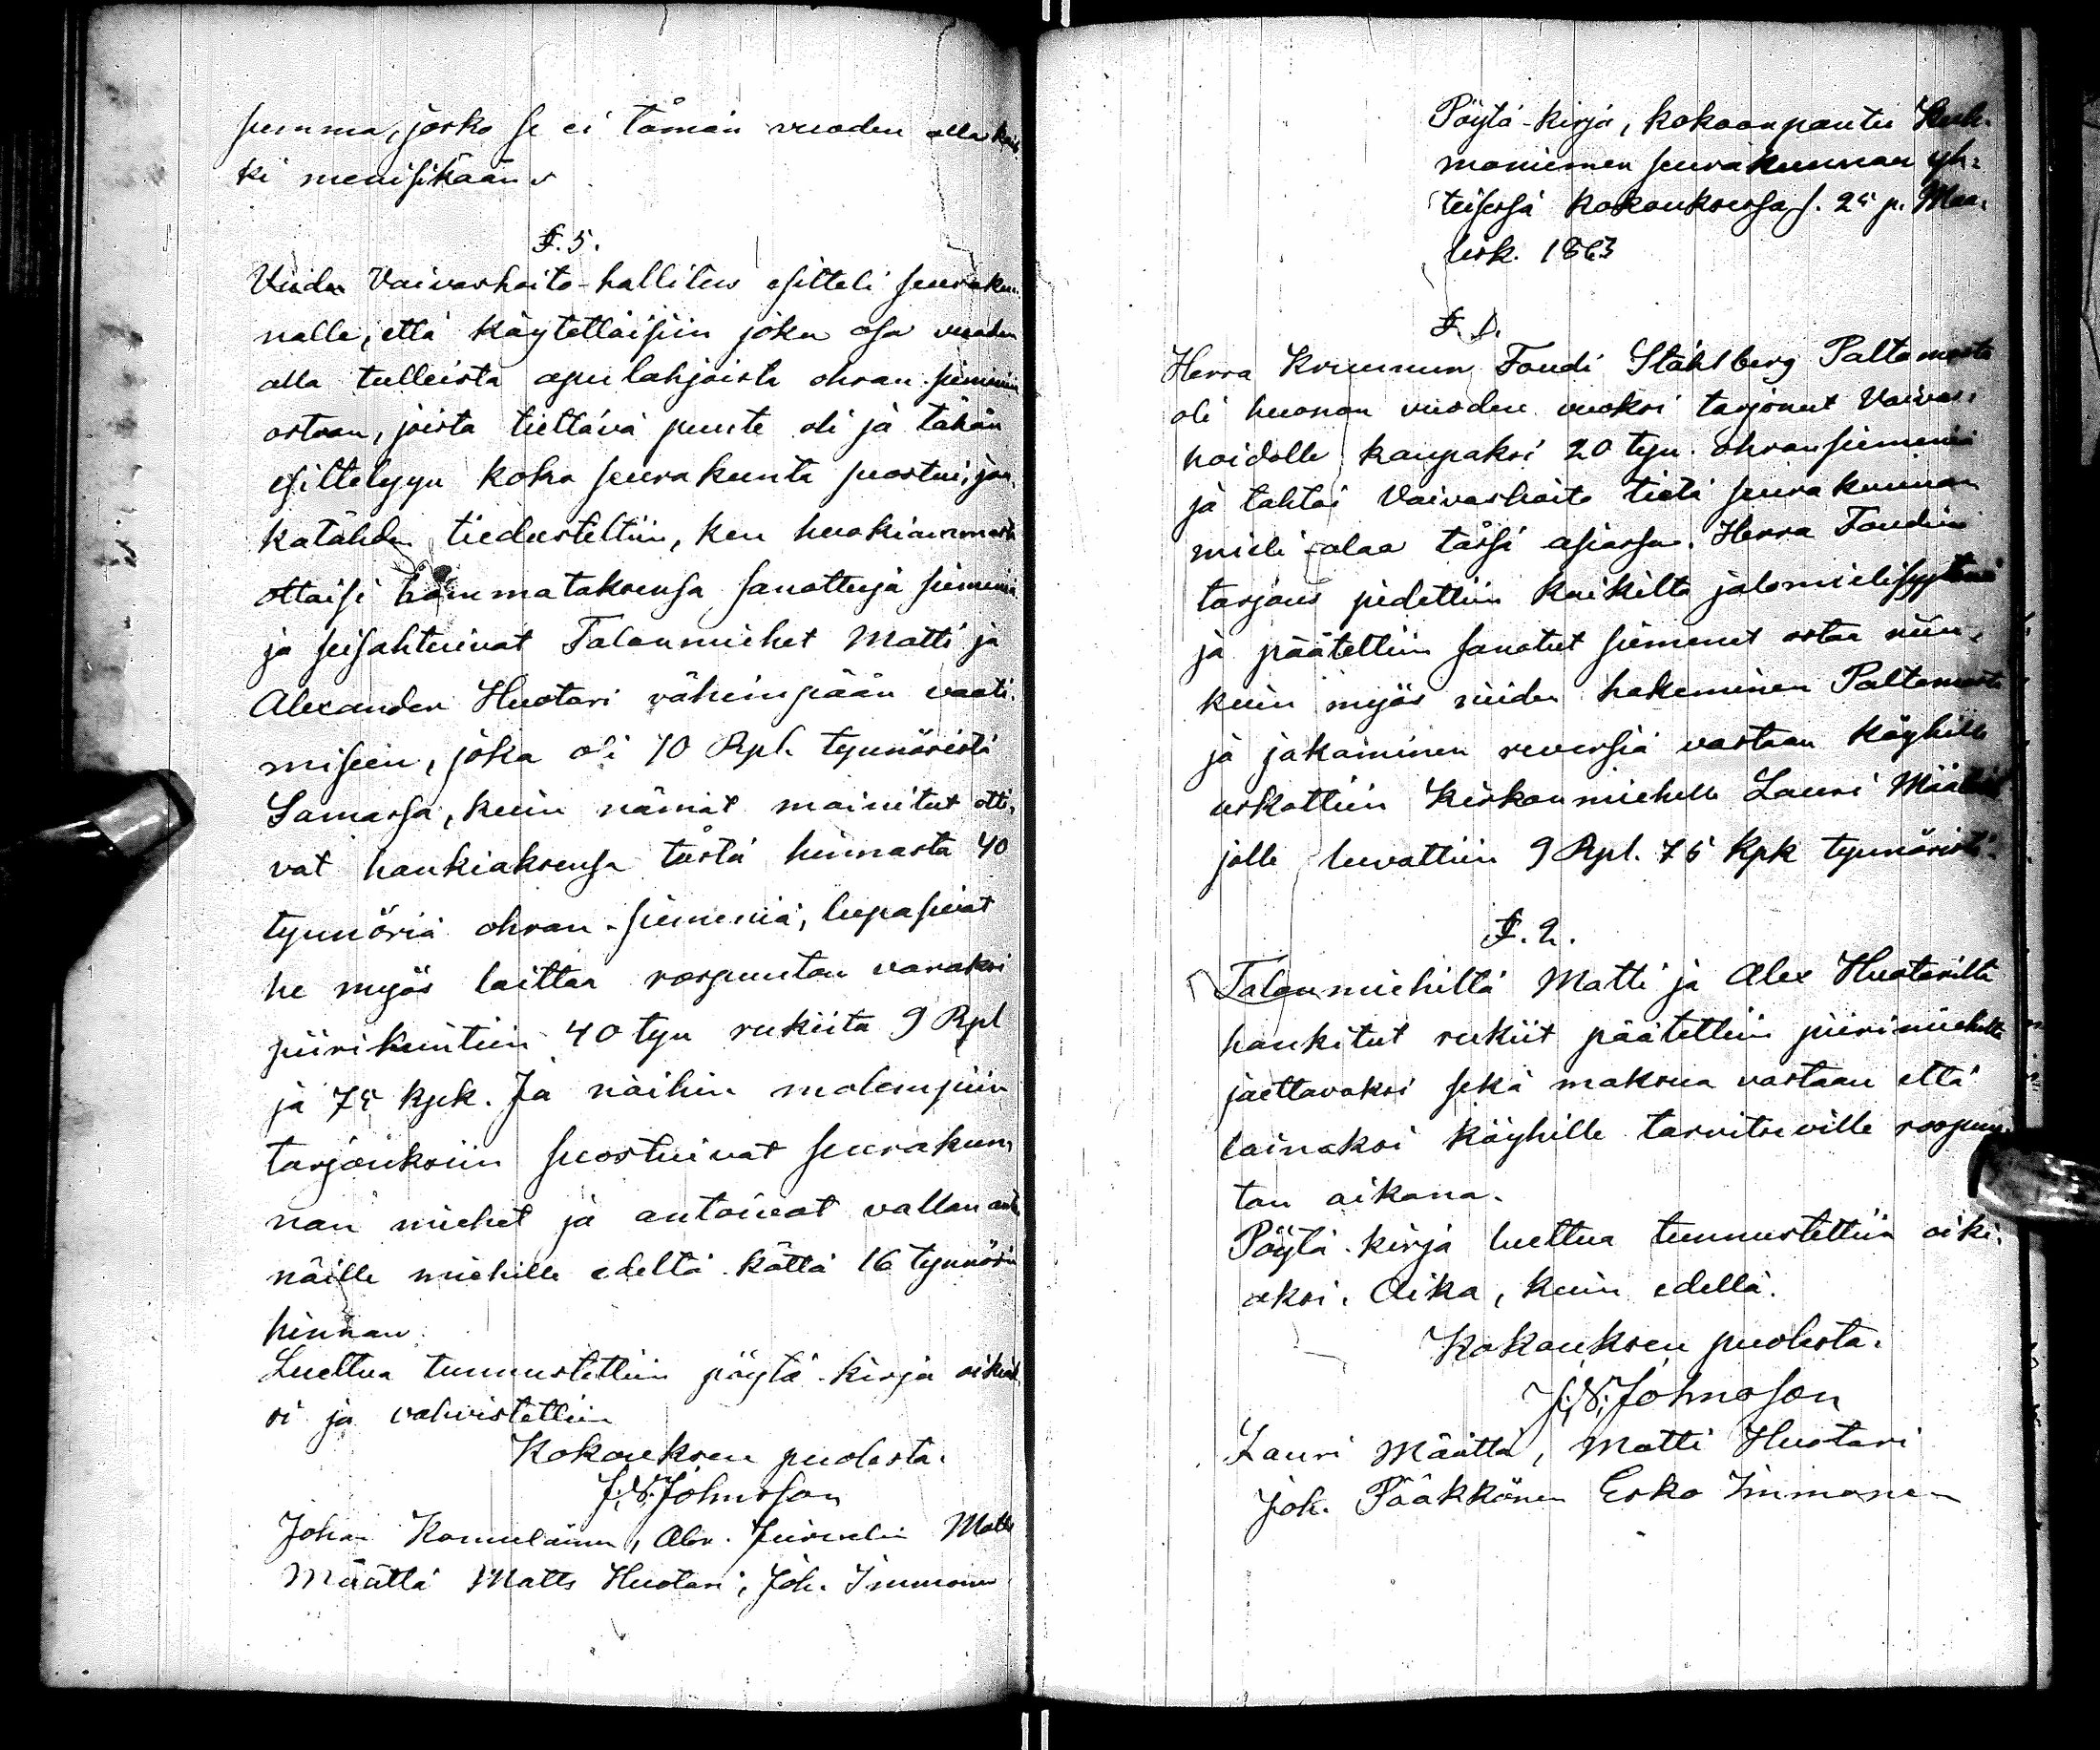 summa, josko se ei tämän vuoden alla kaik-
ki menisikään
§. 5.
Viiden Vaivashoito-hallitus esitteli seurakun-
nalle, että käytettäisiin joku osa vuoden
alla tulleista apulahjoista ohran siemenien
ostoon, joista tiettävä puute oli ja tähän
esittelyyn koko seurakunta suostui, jon-
katähden tiedusteltiin, ken huokiammasta
ottaisi hommataksensa sanottuja siemeniä
ja seisahtuivat Talonmiehet Matti ja
Alexander Huotari vähinpään vaati-
miseen, joka oli 10 Rpl. tynnöristä
Samassa, kuin nämät mainitut otti-
vat hankiaksensa tästä hinnasta 40
tynnöriä ohran-siemeniä, lupasivat
he myös laittaa rospuuton varaksi
piirikuntiin 40 tyn rukiita 9 Rpl
ja 75 kpk. Ja näihin molempiin
tarjouksiin suostuivat seurakun-
nan miehet ja antoivat vallan anta
näille miehille edeltä kättä 16 tynnörin
hinnan.
Luettua tunnustettiin pöytä-kirja oikiak-
si ja vahvistettiin
Kokouksen puolesta.
J. N. Johnsson
Johan Komulainen, Alex. Juvelin Matts
Määttä Matts Huotari, Joh. Immonen
Pöytä-kirja, kokoonpantu Kuh-
moniemen seurakunnan yh-
teisessä kokouksessa s. 25 p. Maa-
lisk. 1863
§. 1.
Herra Kruunun Foudi Ståhlberg Paltamosta
oli huonon vuoden vuoksi tarjonut Vaivas-
hoidolle kaupaksi 20 tyn. ohransiemeniä
ja tahtoi Vaivashoito tietä seurakunnan
mieli-alaa tässä asiassa. Herra Foudin
tarjous pidettiin kaikilta jalomielisyytenä
ja päätettiin sanotut siemenet ostaa niin-
kuin myös niiden hakeminen Paltamosta
ja jakaminen reversiä vastaan köyhille
uskottiin Kirkonmiehelle Lauri Määtälle
jolle luvattiin 9 Rpl. 75 kpk tynnöristä.
§. 2.
Talonmiehiltä Matti ja Alex Huotarilta
hankitut rukiit päätettiin piirimiehille
jaettavaksi sekä maksua vastaan että
lainaksi köyhille tarvitseville rospuu-
ton aikana.
Pöytä-kirja luettua tunnustettiin oiki-
aksi. Aika, kuin edellä.
Kokouksen puolesta.
J. N. Johnsson
Lauri Määttä, Matti Huotari
Joh. Pääkkönen Esko Immonen